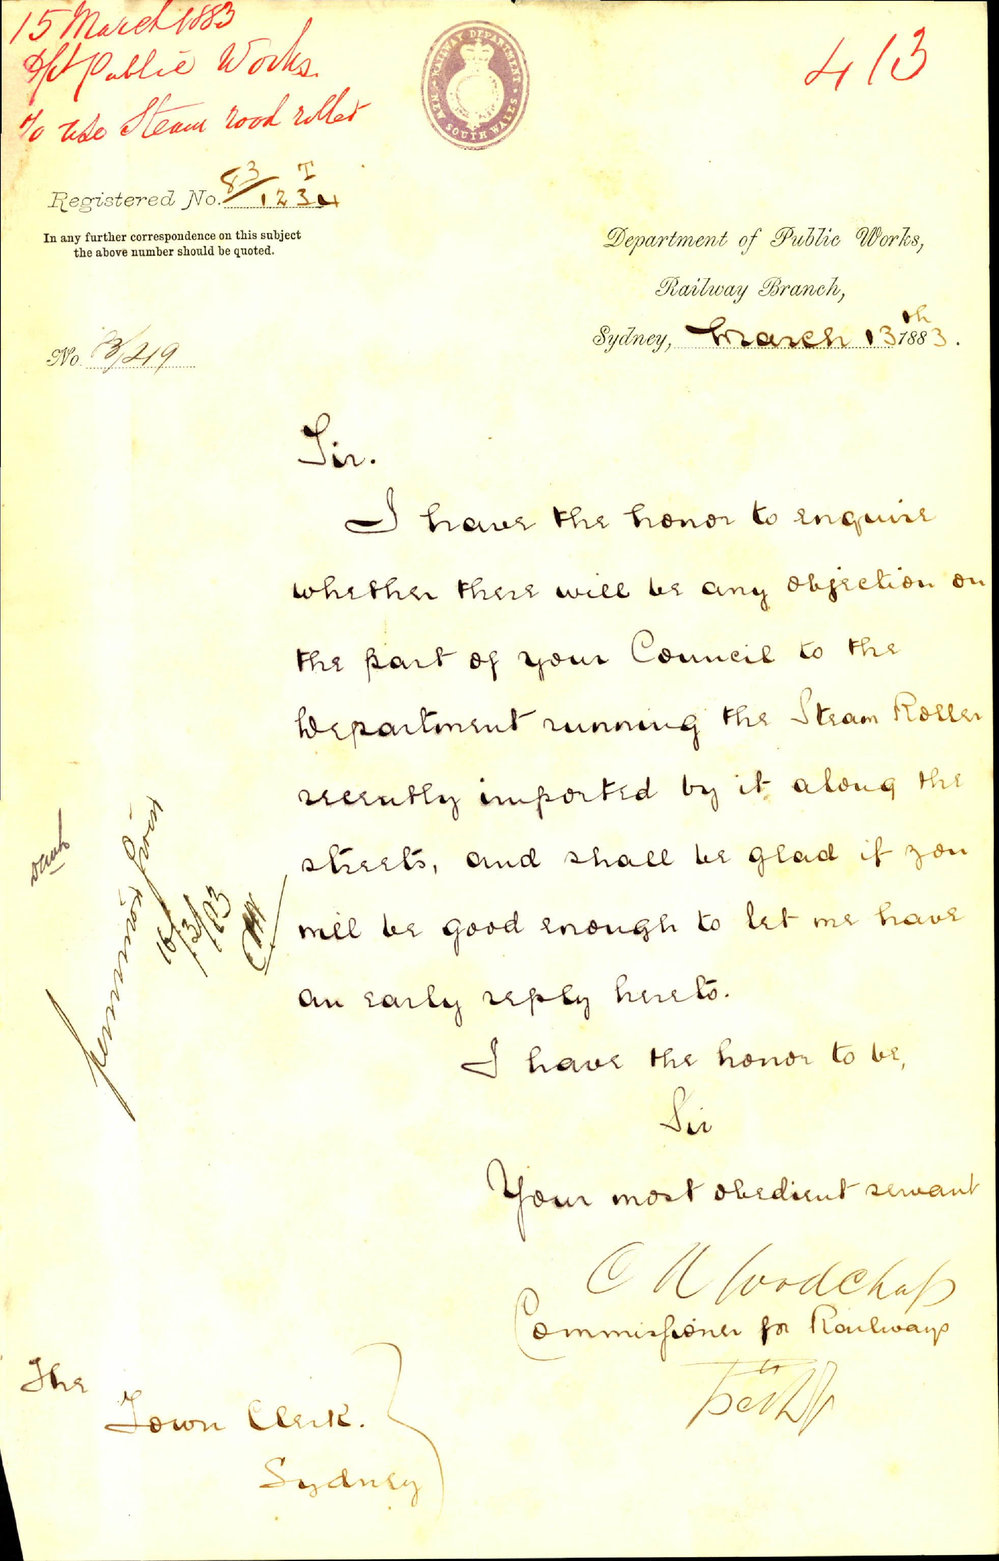 15 March 1883
Dpt Public Works
to use Steam road roller
413
RAILWAY DEPARTMENT
NEW SOUTH WALES
Registered No. 83/1234 T
In any further correspondence on this subject
the above number should be quoted.
Department of Public Works,
Railway Branch,
Sydney, March 13th 1883.
No. 3/219
Sir.
I have the honor to enquire
whether there will be any objection on
the part of your Council to the
Department running the Steam Roller
recently imported by it along the
streets, and shall be glad if you
will be good enough to let me have
an early reply hereto.
I have the honor to be,
Sir
Your most obedient servant
Commissioner for Railways
permission
The
Town Clerk.
Sydney